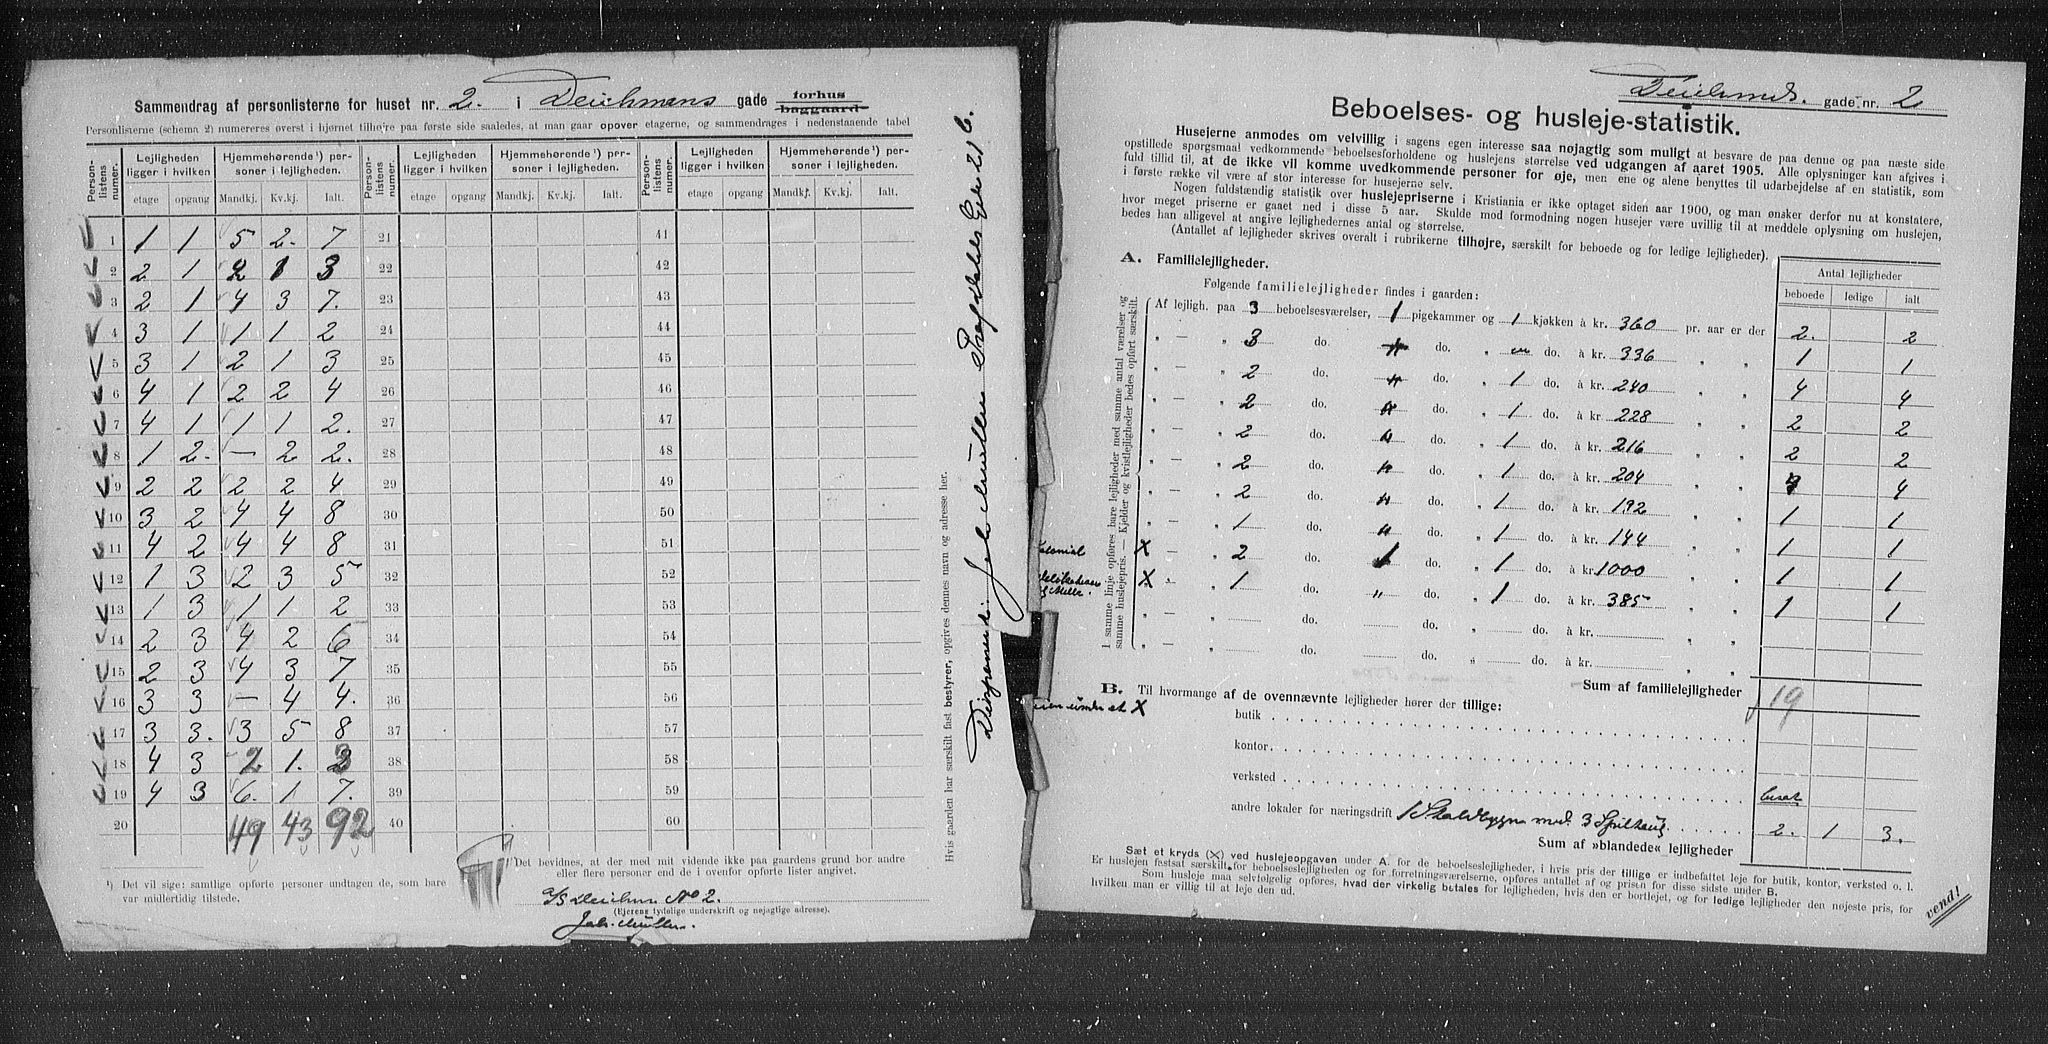 Sammendrag af personlisterne for huset nr. 2. i Deichmans gade forhus baggaard
Personlisterne (schema 2) numereres øverst i hjørnet tilhøire paa første side saaledes, at man gaar opover etagerne, og sammendrages i nedenstaaende tabel
Person-listens numer. Lejligheden ligger i hvilken Hjemmehørende¹) personer i lejligheden. Person-listens numer. Lejligheden ligger i hvilken Hjemmehørende¹) personer i lejligheden. Person-listens numer. Lejligheden ligger i hvilken Hjemmehørende¹) personer i lejligheden.
etage opgang Mandkj. Kv.kj. Ialt. etage opgang Mandkj. Kv.kj. Ialt. etage opgang Mandkj. Kv.kj. Ialt.
1 1 1 5 2. 7 21 41
2 2 1 2 1 3 22 42
3 2 1 4 3 7. 23 43
4 3 1 1 1 2 24 44
5 3 1 2 1 3 25 45
6 4 1 2 2 4 26 46
7 4 1 1 1 2. 27 47
8 1 2. — 2 2. 28 48
9 2 2 2 2 4 29 49
10 3 2 4 4 8 30 50
11 4 2 4 4 8 31 51
12 1 3 2 3 5 32 52
13 1 3 1 1 2 33 53
14 2 3 4 2 6 34 54
15 2 3 4 3 7 35 55
16 3 3 — 4 4. 36 56
17 3 3. 3 5 8 37 57
18 4 3 2 1. 3 38 58
19 4 3 6. 1 7. 39 59
20 49 43 92 40 60
¹) Det vil sige: samtlige opførte personer undtagen de, som bare var midlertidig tilstede.
Det bevidnes, at der med mit vidende ikke paa gaardens grund bor andre eller flere personer end de i ovenfor opførte lister angivet.
A/S Deichm No 2.
(Ejerens tydelige underskrift og nøjagtige adresse).
Joh. Müller.
Hvis gaarden bar særskilt fast bestyrer, opgives dennes navn og adresse her.
Joh. Müller
21 b.
Deichmans. gade nr. 2
Beboelses- og husleje-statistik.
Husejerne anmodes om velvillig i sagens egen interesse saa nøjagtig som muligt at besvare de paa denne og paa næste side
opstillede spørgsmaal vedkommende beboelsesforholdene og huslejens størrelse ved udgangen af aaret 1905. Alle oplysninger kan afgives i
fuld tillid til, at de ikke vil komme uvedkommende personer for øje, men ene og alene benyttes til udarbejdelse af en statistik, som
i første række vil være af stor interesse for husejerne selv.
Nogen fuldstændig statistik over huslejepriserne i Kristiania er ikke optaget siden aar 1900, og man ønsker derfor nu at konstatere,
hvor meget priserne er gaaet ned i disse 5 aar. Skulde mod formodning nogen husejer være uvillig til at meddele oplysning om huslejen,
bedes han alligevel at angive lejlighedernes antal og størrelse.
(Antallet af lejligheder skrives overalt i rubrikerne tilhøjre, særskilt for beboede og for ledige lejligheder).
A. Familielejligheder.
Antal lejligheder
Følgende familielejligheder findes i gaarden:
beboede ledige ialt
I samme linje opføres bare lejligheder med samme antal værelser og samme huslejepris. — Kjelder og kvistlejligheder bedes opført særskilt.
Af lejligh. paa 3 beboelsesværelser, 1 pigekammer og 1 kjøkken à kr. 360 pr. aar er der 2. 2
" — " 3 do. " do. " do. à kr. 336 " " 1 1
" — " 2 do. " do. " 1 do. à kr. 240 " " 4 4
" — " 2 do. " do. " 1 do. à kr. 228 " " 2 2
" — " 2 do. " do. " 1 do. à kr. 216 " " 2 2
" — " 2 do. " do. " 1 do. à kr. 204 " " 4 4
" — " 2 do. " do. " 1 do. à kr. 192 " " 1 1
" — " 1 do. " do. " 1 do. à kr. 144 " " 1 1
X — " 2 do. 1 do. " 1 do. à kr. 1000 " " 1 1
X — " 1 do. " do. " 1 do. à kr. 385 " " 1 1
" — " do. " do. " do. à kr. " "
" — " do. " do. " do. à kr. " "
Sum af familielejligheder 19
B. Til hvormange af de ovennævnte lejligheder hører der tillige:
X
butik
kontor
verksted
andre lokaler for næringsdrift 1 Staldbygn med 3 Spiltaug
besat
2. 1 3.
Sum af »blandede« lejligheder
Sæt et kryds (X) ved huslejeopgaven under A. for de beboelseslejligheder, i hvis pris der tillige er indbefattet leje for butik, kontor, verksted o. l.
Er huslejen festsat særskilt for beboelseslejlighederne og for forretningsværelserne, opføres antallet af og prisen for disse sidste under B.
Som husleje maa selvfølgelig opføres, hvad der virkelig betales for lejligheden, hvis den er bortlejet, og for ledige lejligheder den nøjeste pris, for
hvilken man er villig til at leje den ud.
vend!